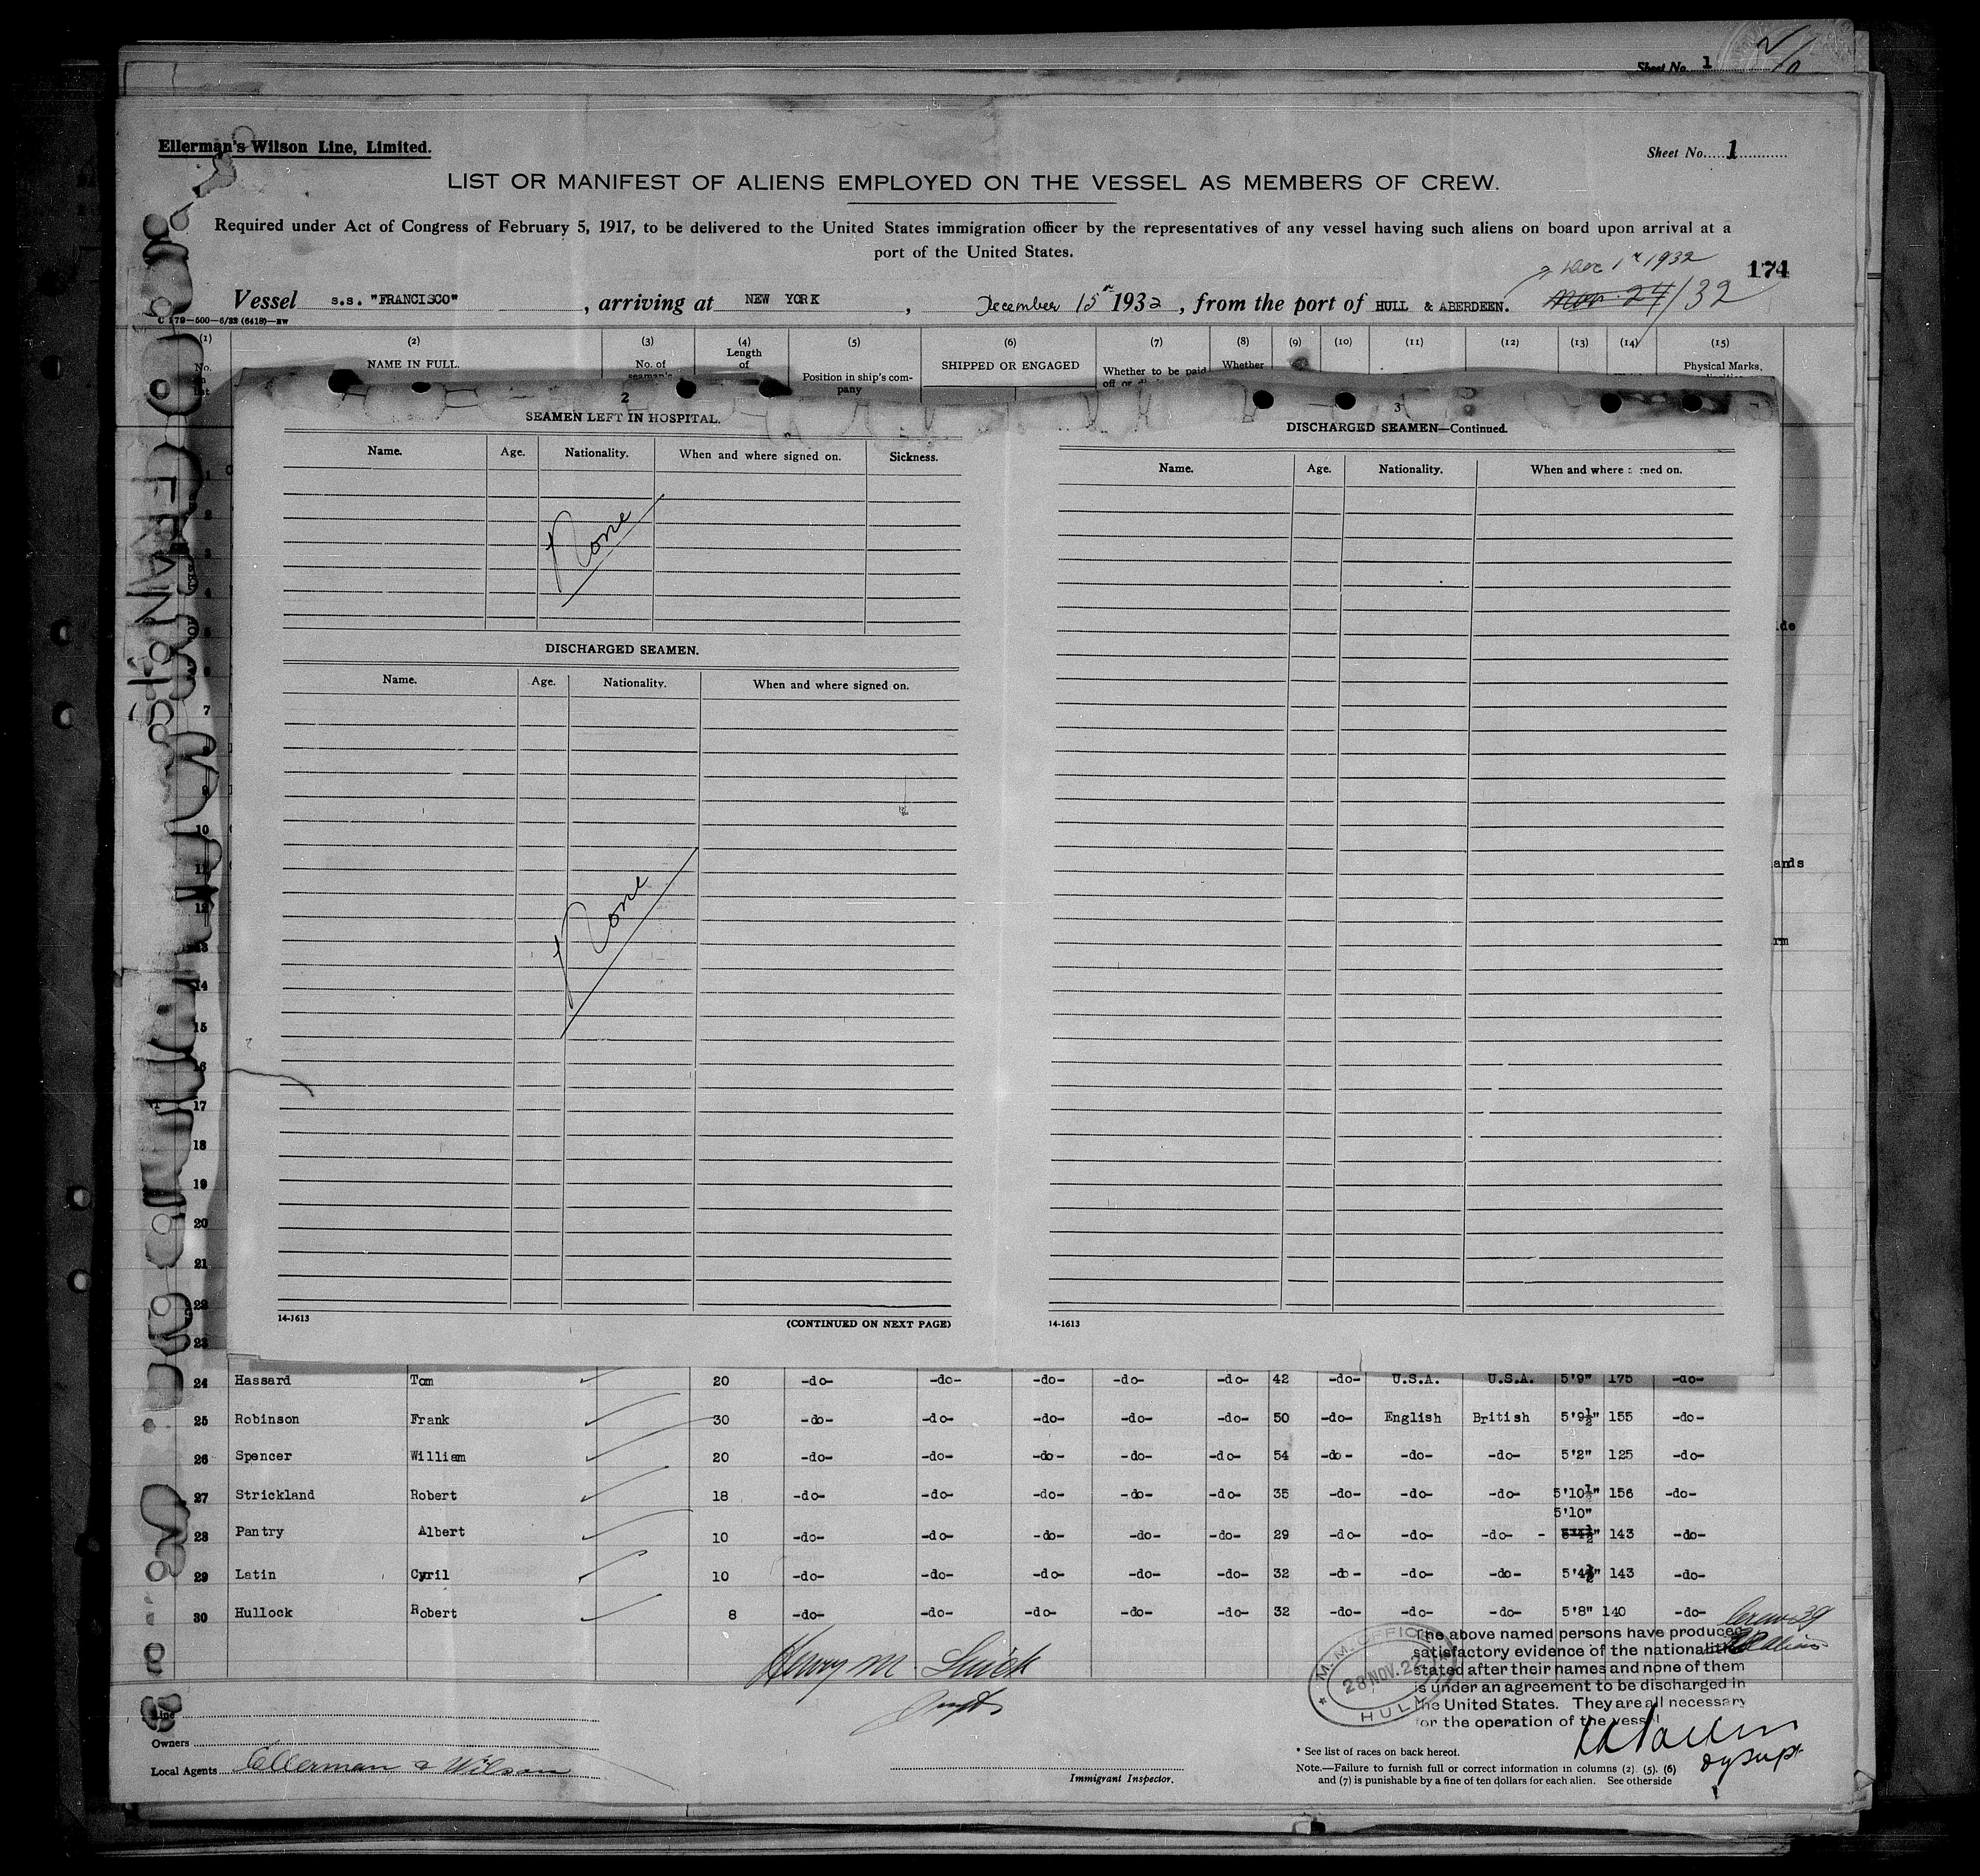 Sheet No. 1
Ellerman's Wilson Line, Limited.
Sheet No. 1
LIST OR MANIFEST OF ALIENS EMPLOYED ON THE VESSEL AS MEMBERS OF CREW.
Required under Act of Congress of February 5, 1917, to be delivered to the United States immigration officer by the representatives of any vessel having such aliens on board upon arrival at a
port of the United States.
Dec 1st 1932
174
Vessel s.s. "FRANCISCO", arriving at NEW YORK, December 15th 1932, from the port of HULL & ABERDEEN. Nov. 24/32
C 179—500—6/32 (6418)—EW
(1) (2) (3) (4) (5) (6) (7) (8) (9) (10) (11) (12) (13) (14) (15)
No. NAME IN FULL. No. of Length of Position in ship's company SHIPPED OR ENGAGED Whether to be paid off or Whether Physical Marks,
2
SEAMEN LEFT IN HOSPITAL.
Name. Age. Nationality. When and where signed on. Sickness.
None
DISCHARGED SEAMEN.
Name. Age. Nationality. When and where signed on.
None
14-1613 (CONTINUED ON NEXT PAGE)
3
DISCHARGED SEAMEN—Continued.
Name. Age. Nationality. When and where signed on.
14-1613
FRANCISCO
1
2
3
4
5
6
7
8
9
10
11
12
13
14
15
16
17
18
19
20
21
22
23
24 Hassard Tom 20 -do- -do- -do- -do- -do- 42 -do- U.S.A. U.S.A. 5'9" 175 -do-
25 Robinson Frank 30 -do- -do- -do- -do- -do- 50 -do- English British 5'9½" 155 -do-
26 Spencer William 20 -do- -do- -do- -do- -do- 54 -do- -do- -do- 5'2" 125 -do-
27 Strickland Robert 18 -do- -do- -do- -do- -do- 35 -do- -do- -do- 5'10½" 156 -do-
5'10"
28 Pantry Albert 10 -do- -do- -do- -do- -do- 29 -do- -do- -do- - 5'4½" 143 -do-
29 Latin Cyril 10 -do- -do- -do- -do- -do- 32 -do- -do- -do- 5'4½" 143 -do-
30 Hullock Robert 8 -do- -do- -do- -do- -do- 32 -do- -do- -do- 5'8" 140 -do-
Crew 39
The above named persons have produced
satisfactory evidence of the nationalities
stated after their names and none of them
is under an agreement to be discharged in
the United States. They are all necessary
for the operation of the vessel
M.M. OFFICE
28 NOV. 32
HULL
Henry M.
Line
Owners
Local Agents Ellerman & Wilson
Immigrant Inspector.
* See list of races on back hereof.
Note.—Failure to furnish full or correct information in columns (2) (5), (6)
and (7) is punishable by a fine of ten dollars for each alien. See otherside
dy supt